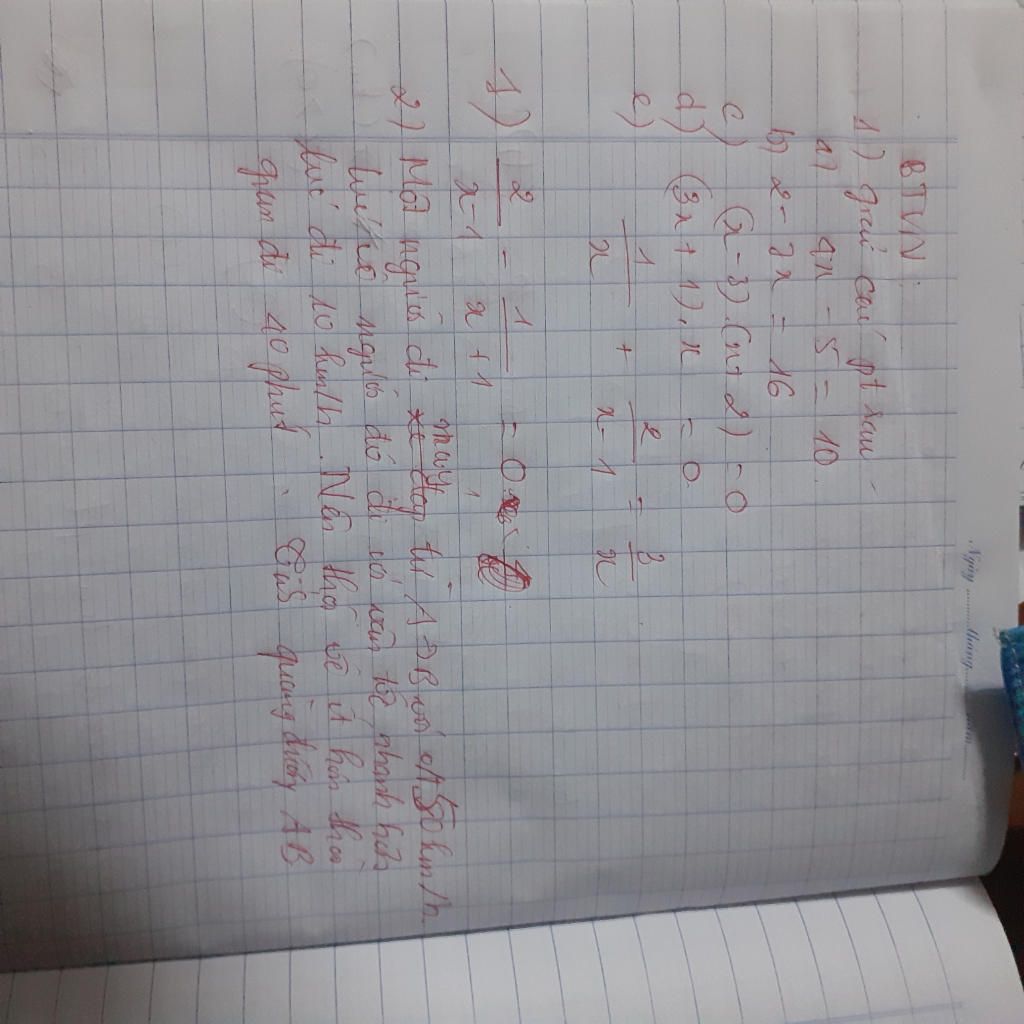 Ngày ........ tháng ........ năm ........
BTVN:
1) giải cái pt sau:
a) 4x - 5 = 10
b) 2 - 7x = 16
c) (x - 3).(x + 2) = 0
d) (3x + 1).x = 0
e) 1/x + 2/x-1 = 3/x
1) 2/x-1 - 1/x+1 = 0
2) Một người đi máy từ A → B với vt 50 km/h.
Lúc về người đó đi có vận tốc nhanh hơn
lúc đi 10 km/h. Nên thời về ít hơn thời
gian đi 40 phút. Tính quãng đường AB